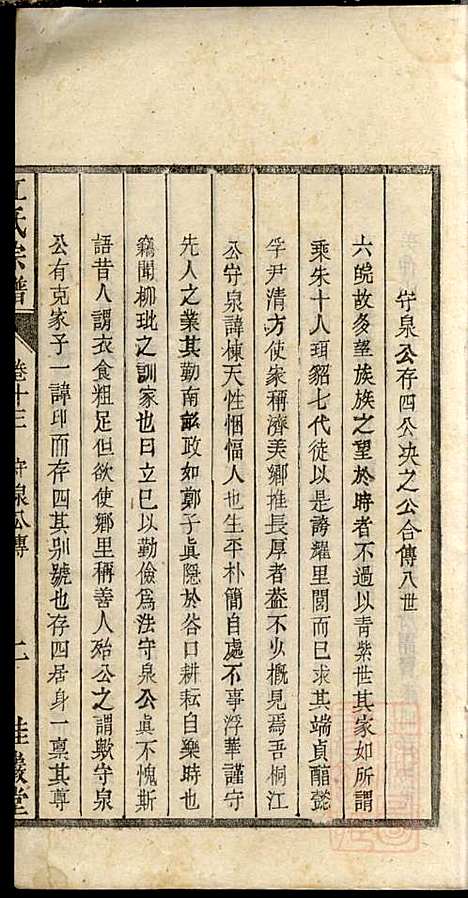 守泉公存四公决之公合傳八世
六皖故多望族族之望於時者不過以青紫世其家如所謂
乘朱十人珥貂七代徒以是誇耀里閭而已求其端貞醞懿
孚尹清方使家稱濟美鄉推長厚者葢不少概見焉吾桐江
公守泉諱棟天性悃愊人也生平朴簡自處不事浮華謹守
先人之業其勤南畝政如鄭子眞隱於谷口耕耘自樂時也
竊聞柳玭之訓家也曰立巳以勤儉爲法守泉公眞不愧斯
語昔人謂衣食粗足但欲使鄉里稱善人殆公之謂歟守泉
公有克家子一諱印而存四其别號也存四居身一禀其尊
江氏宗譜
卷十三 守泉公傳